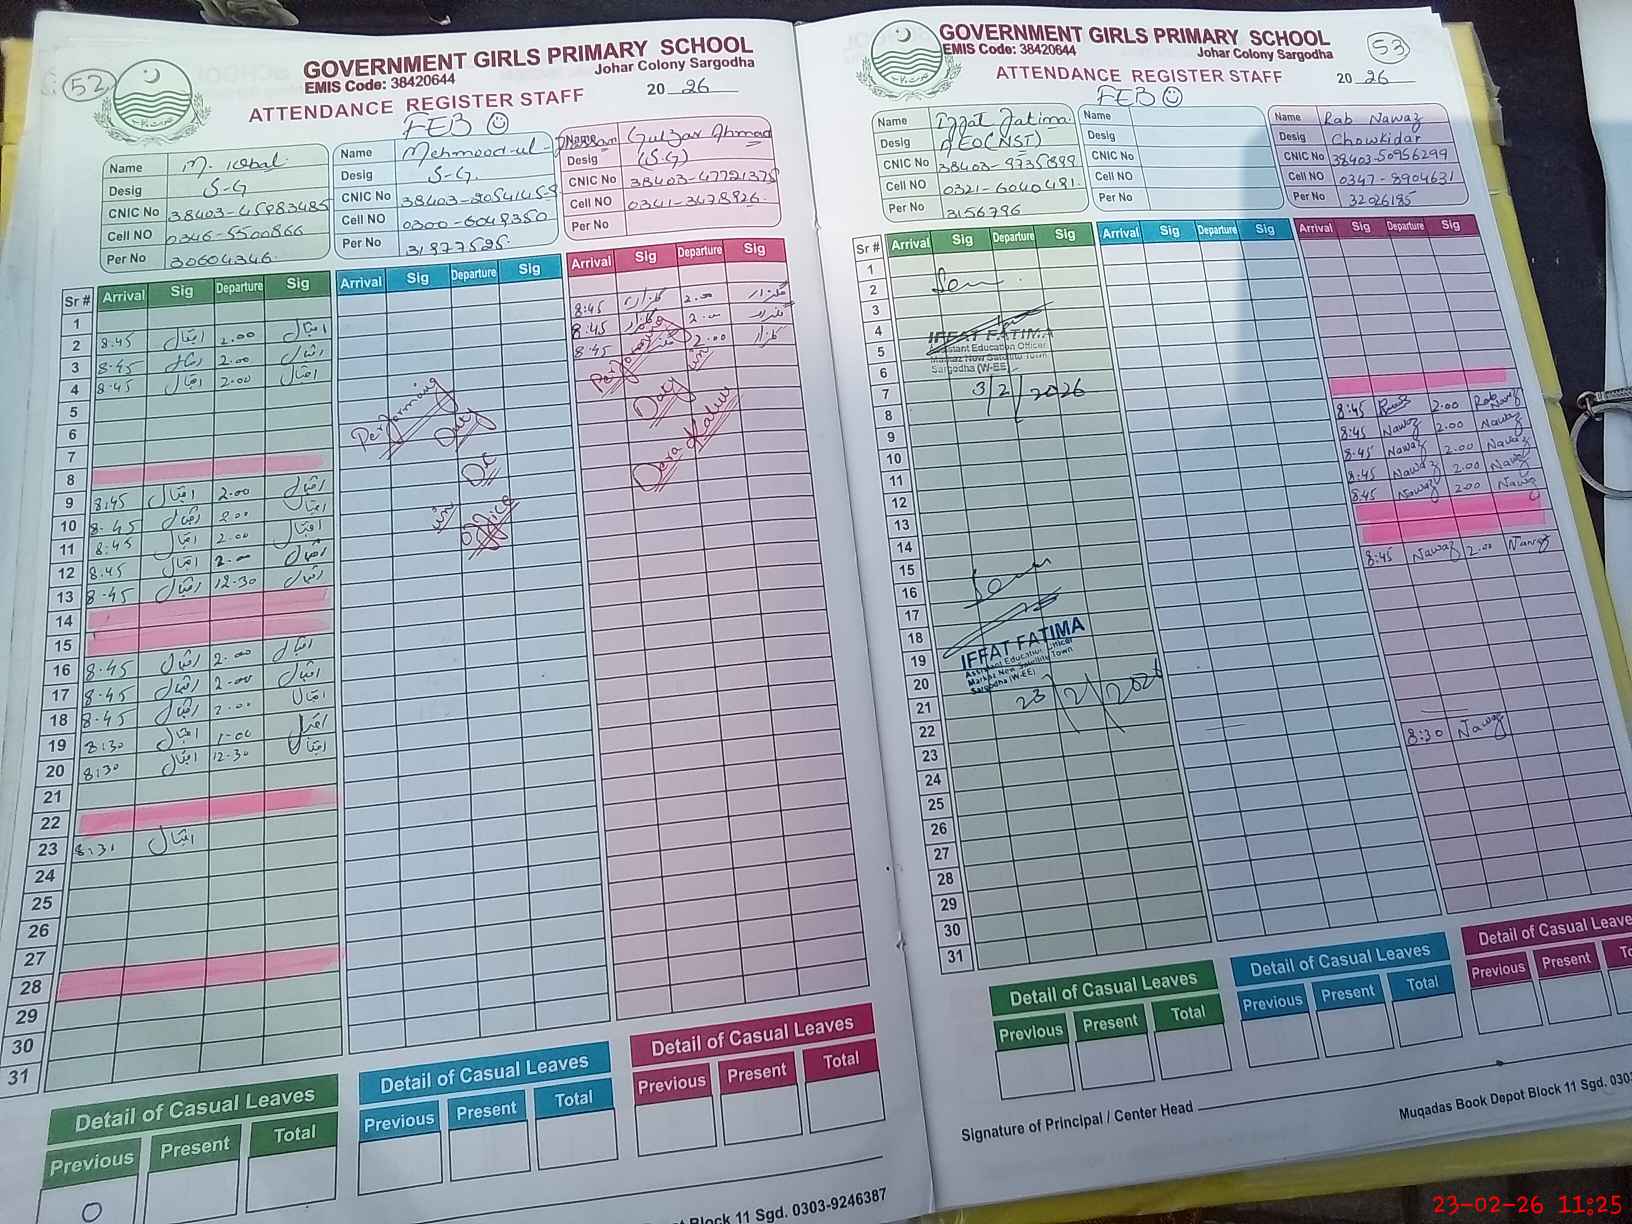 52
GOVERNMENT GIRLS PRIMARY SCHOOL
EMIS Code: 38420644
Johar Colony Sargodha
ATTENDANCE REGISTER STAFF
20 26
FEB
Name M. Iqbal
Desig S-G
CNIC No 38403-45983485
Cell NO 0346-5500866
Per No 30604346
Name Mehmood-ul-
Desig S-G.
CNIC No
Cell NO 0300-6049350
Per No 31877525
Name Gulzar Ahmad
Desig (S.G)
CNIC No 38403-47721375
Cell NO 0341-3478926
Per No
Sr # Arrival Sig Departure Sig Arrival Sig Departure Sig Arrival Sig Departure Sig
1
2 8:45 اقبال 2.00 اقبال 8:45 گلزار 2.00 گلزار
3 8:45 اقبال 2.00 اقبال 8:45 گلزار 2.00
4 8:45 اقبال 2.00 اقبال 8:45 2.00 گلزار
5
6
7
8
9 8:45 اقبال 2.00 اقبال
10 8:45 اقبال 2.00 اقبال
11 8:45 اقبال 2.00 اقبال
12 8:45 اقبال 2.00 اقبال
13 8:45 اقبال 12.30 اقبال
14
15
16 8:45 اقبال 2.00 اقبال
17 8:45 اقبال 2.00 اقبال
18 8:45 اقبال 2.00 اقبال
19 8:30 اقبال 1.00 اقبال
20 8:30 اقبال 12.30 اقبال
21
22
23 8:31 اقبال
24
25
26
27
28
29
30
31
Performing
Duty
DC
in
Office
Performing
Duty in
Dara
Detail of Casual Leaves
Previous Present Total
0
Detail of Casual Leaves
Previous Present Total
Detail of Casual Leaves
Previous Present Total
Block 11 Sgd. 0303-9246387
53
GOVERNMENT GIRLS PRIMARY SCHOOL
EMIS Code: 38420644
Johar Colony Sargodha
ATTENDANCE REGISTER STAFF
20 26
FEB
Name Iffat Fatima
Desig AEO(NST)
CNIC No 38403-9735899
Cell NO 0321-6040491
Per No 3156796
Name
Desig
CNIC No
Cell NO
Per No
Name Rab Nawaz
Desig Chowkidar
CNIC No 38403-50956299
Cell NO 0347-8904631
Per No 32026185
Sr # Arrival Sig Departure Sig Arrival Sig Departure Sig Arrival Sig Departure Sig
1
2
3
4
5
6
7
8
9
10
11
12
13
14
15
16
17
18
19
20
21
22
23
24
25
26
27
28
29
30
31
IFFAT FATIMA
Assistant Education Officer
Markaz New Satellite Town
Sargodha (W-EE)
3/2/2026
IFFAT FATIMA
Assistant Education Officer
Markaz New Satellite Town
Sargodha (W-EE)
23/2/2026
8:45 2.00 Rab Nawaz
8:45 Nawaz 2.00 Nawaz
8:45 Nawaz 2.00 Nawaz
8:45 Nawaz 2.00 Nawaz
8:45 Nawaz 2.00 Nawaz
8:45 Nawaz 2.00 Nawaz
8:30 Nawaz
Detail of Casual Leaves
Previous Present Total
Detail of Casual Leaves
Previous Present Total
Detail of Casual Leave
Previous Present
Signature of Principal / Center Head
Muqadas Book Depot Block 11 Sgd. 0303
23-02-26 11:25